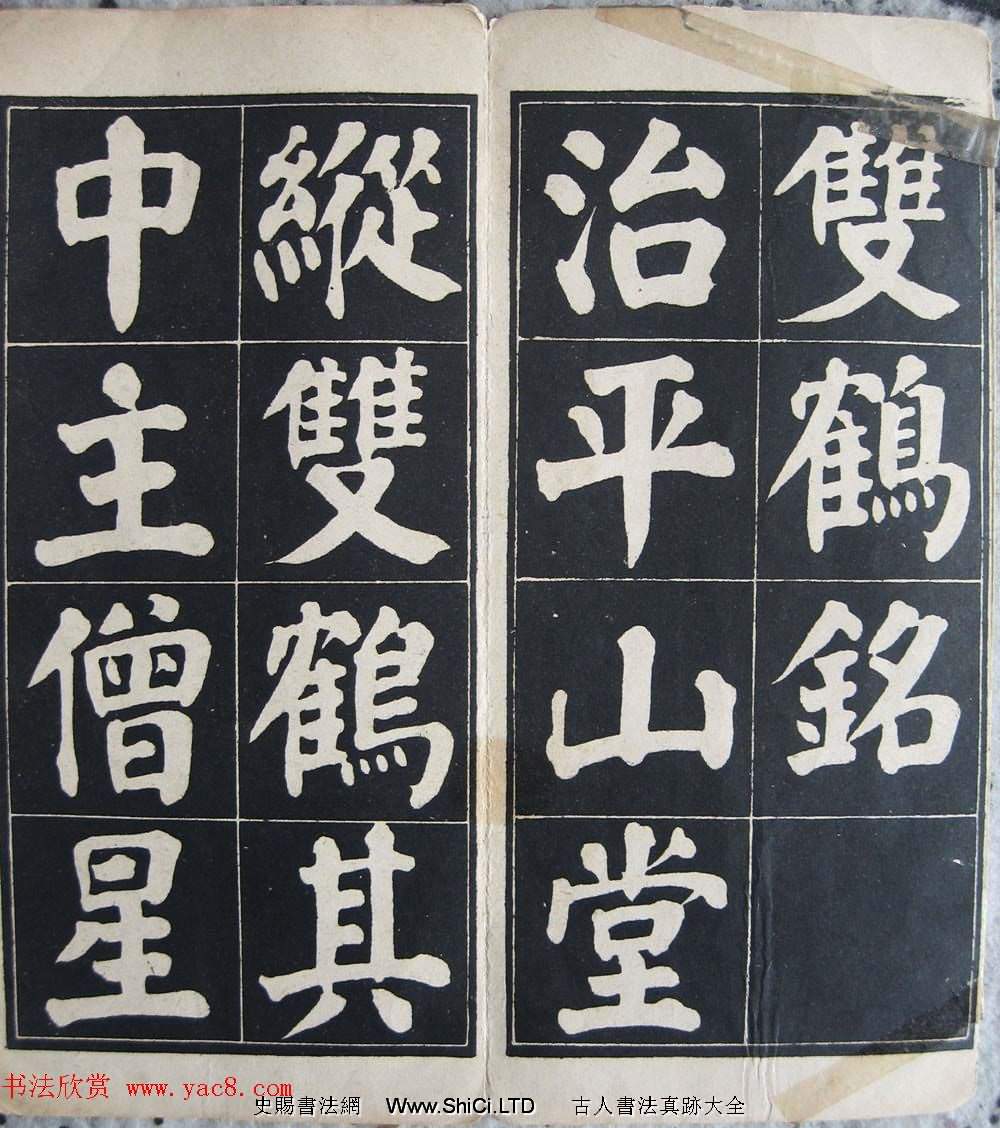 雙鶴銘
治平山堂
縱雙鶴其
中主僧星
书法欣赏 www.yac8.com
史賜書法網 Www.ShiCi.LTD 古人書法真跡大全